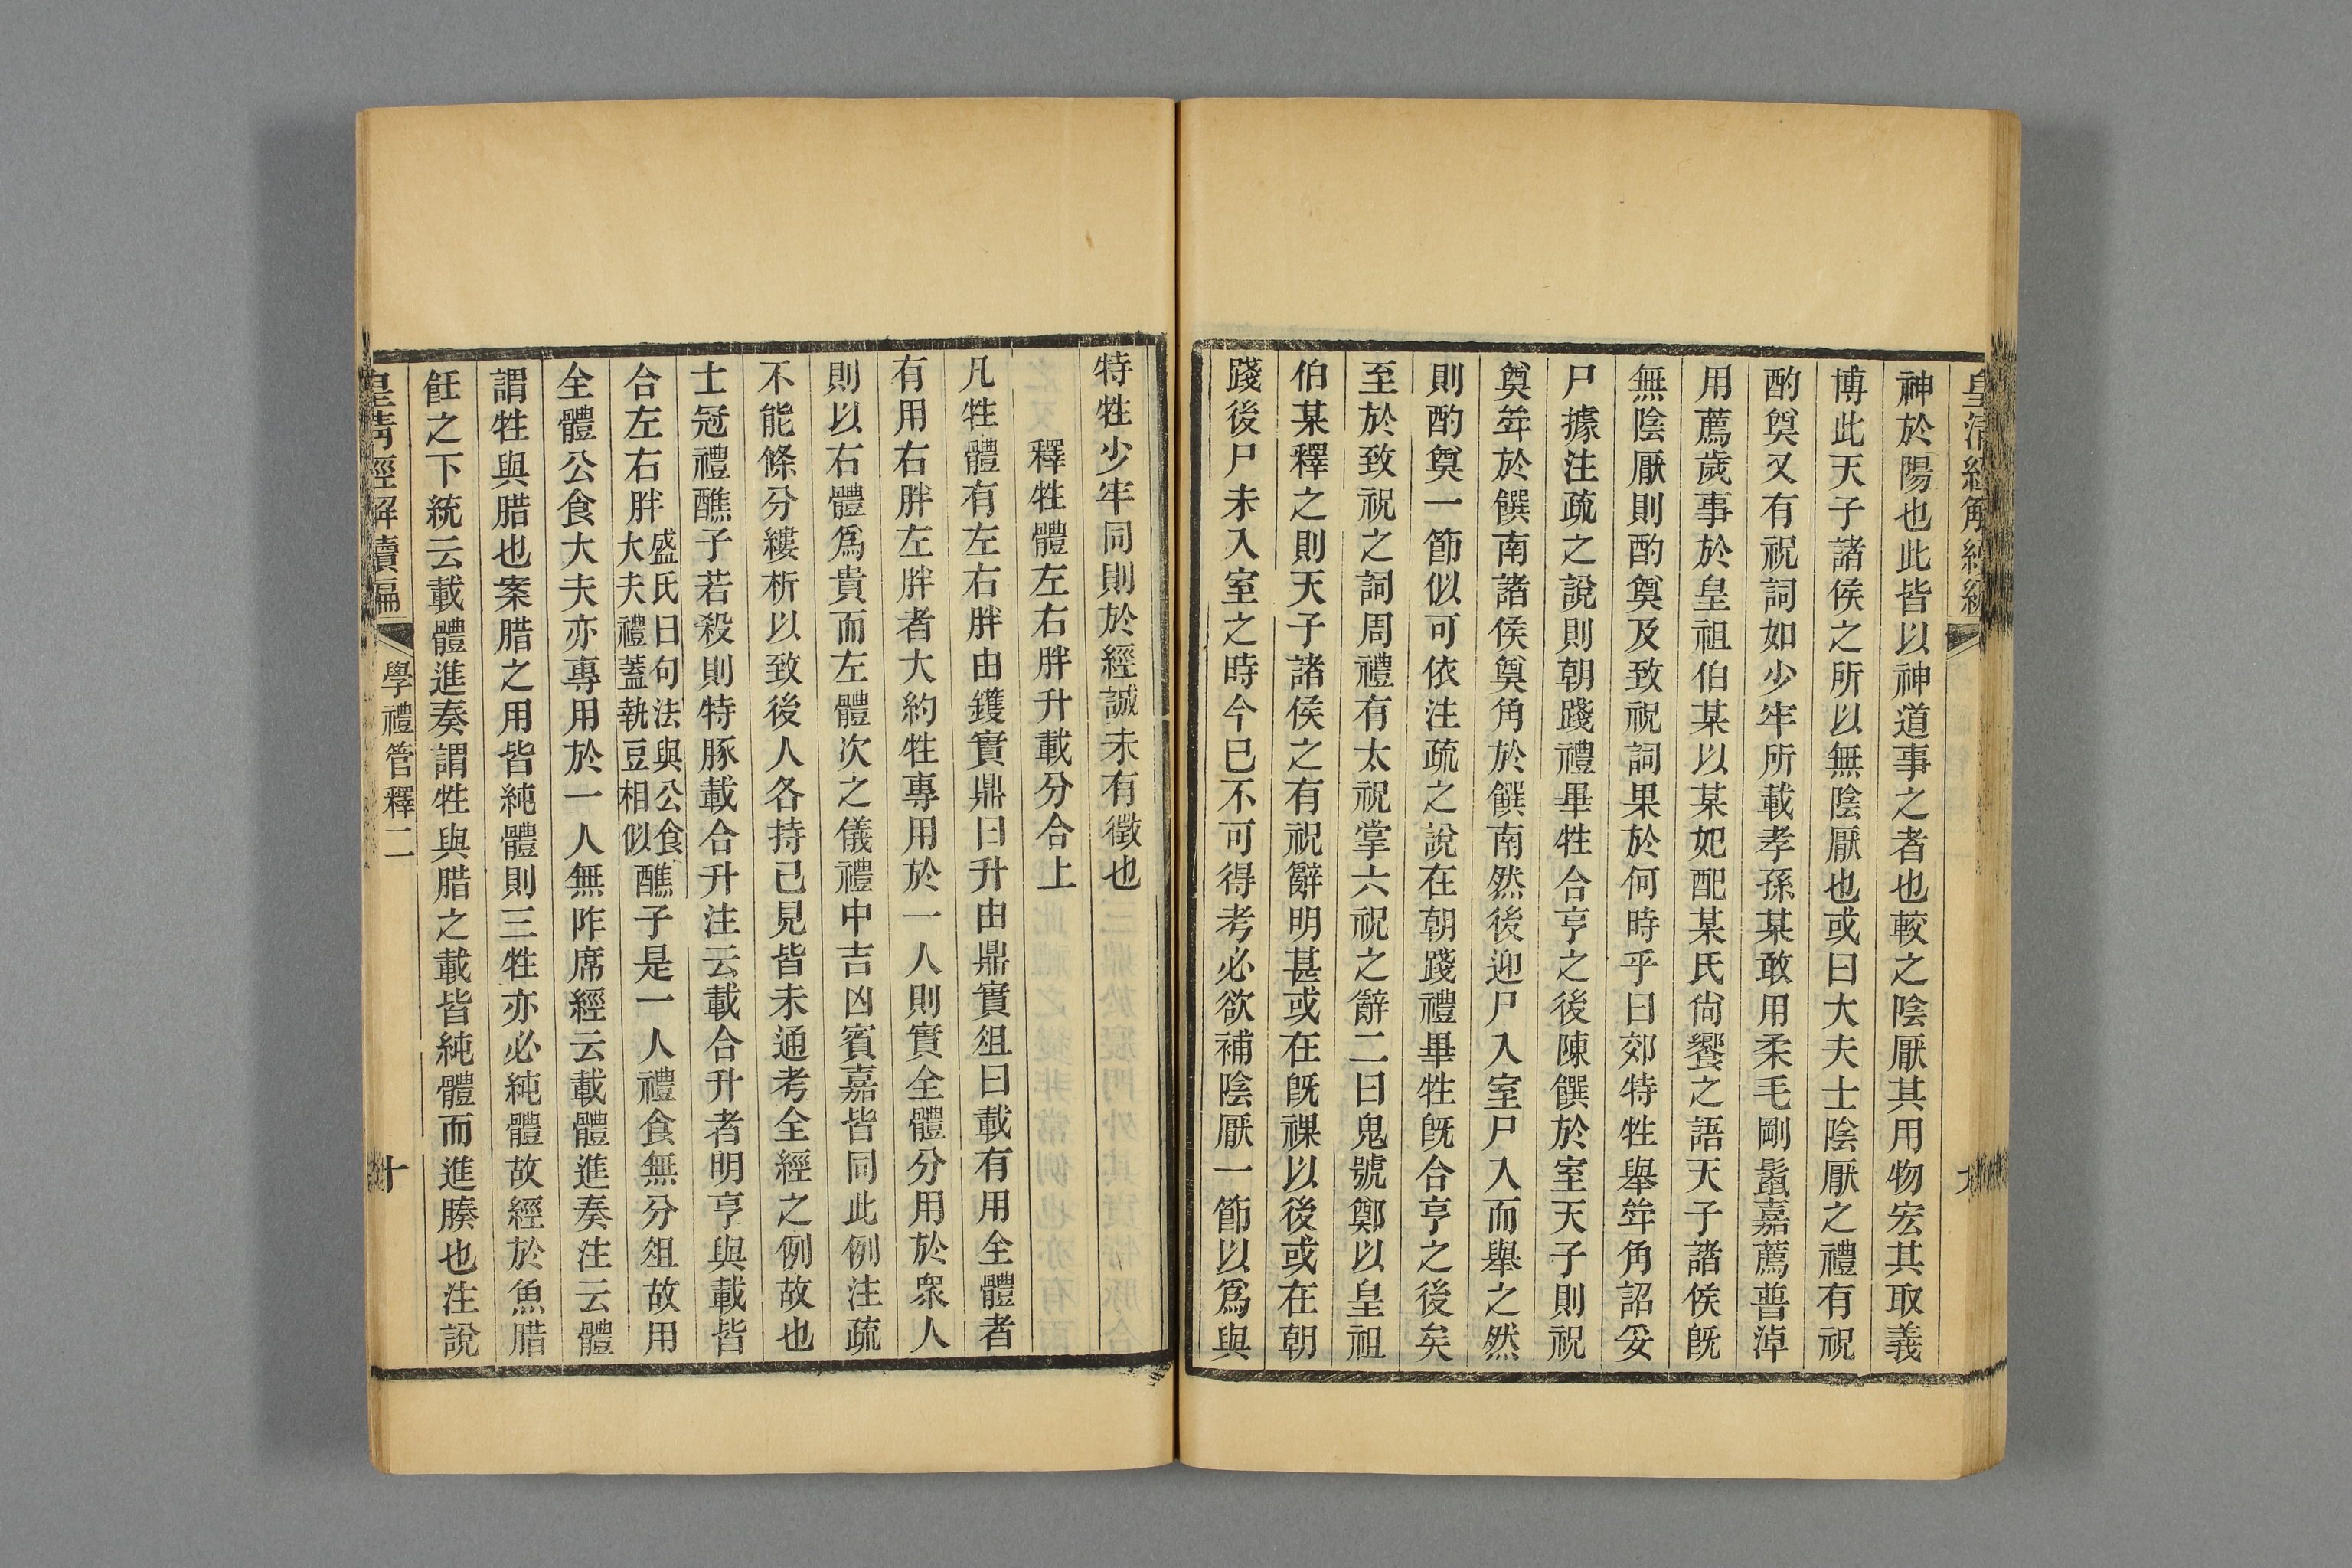 皇清經解續編
神於陽也此皆以神道事之者也較之陰厭其用物宏其取義
博此天子諸侯之所以無陰厭也或曰大夫士陰厭之禮有祝
酌奠又有祝詞如少牢所載孝孫某敢用柔毛剛鬣嘉薦普淖
用薦歲事於皇祖伯某以某妃配某氏尙饗之語天子諸侯旣
無陰厭則酌奠及致祝詞果於何時乎曰郊特牲舉斝角詔妥
尸據注疏之說則朝踐禮畢牲合亨之後陳饌於室天子則祝
奠斝於饌南諸侯奠角於饌南然後迎尸入室尸入而舉之然
則酌奠一節似可依注疏之說在朝踐禮畢牲旣合亨之後矣
至於致祝之詞周禮有太祝掌六祝之辭二曰鬼號鄭以皇祖
伯某釋之則天子諸侯之有祝辭明甚或在旣祼以後或在朝
踐後尸未入室之時今已不可得考必欲補陰厭一節以爲與
特牲少牢同則於經誠未有徵也
釋牲體左右胖升載分合上
凡牲體有左右胖由鑊實鼎曰升由鼎實俎曰載有用全體者
有用右胖左胖者大約牲專用於一人則實全體分用於衆人
則以右體爲貴而左體次之儀禮中吉凶賓嘉皆同此例注疏
不能條分縷析以致後人各持已見皆未通考全經之例故也
士冠禮醮子若殺則特豚載合升注云載合升者明亨與載皆
合左右胖盛氏曰句法與公食大夫禮蓋執豆相似醮子是一人禮食無分俎故用
全體公食大夫亦專用於一人無阼席經云載體進奏注云體
謂牲與腊也案腊之用皆純體則三牲亦必純體故經於魚腊
飪之下統云載體進奏謂牲與腊之載皆純體而進腠也注說
皇清經解續編
學禮管釋二
十